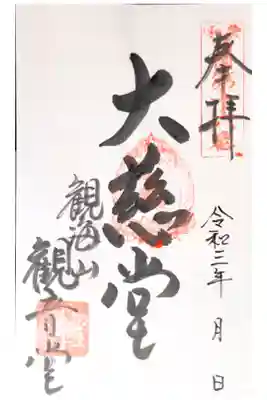 奉拝
令和三年 月 日
大慈堂
観海山
観音堂